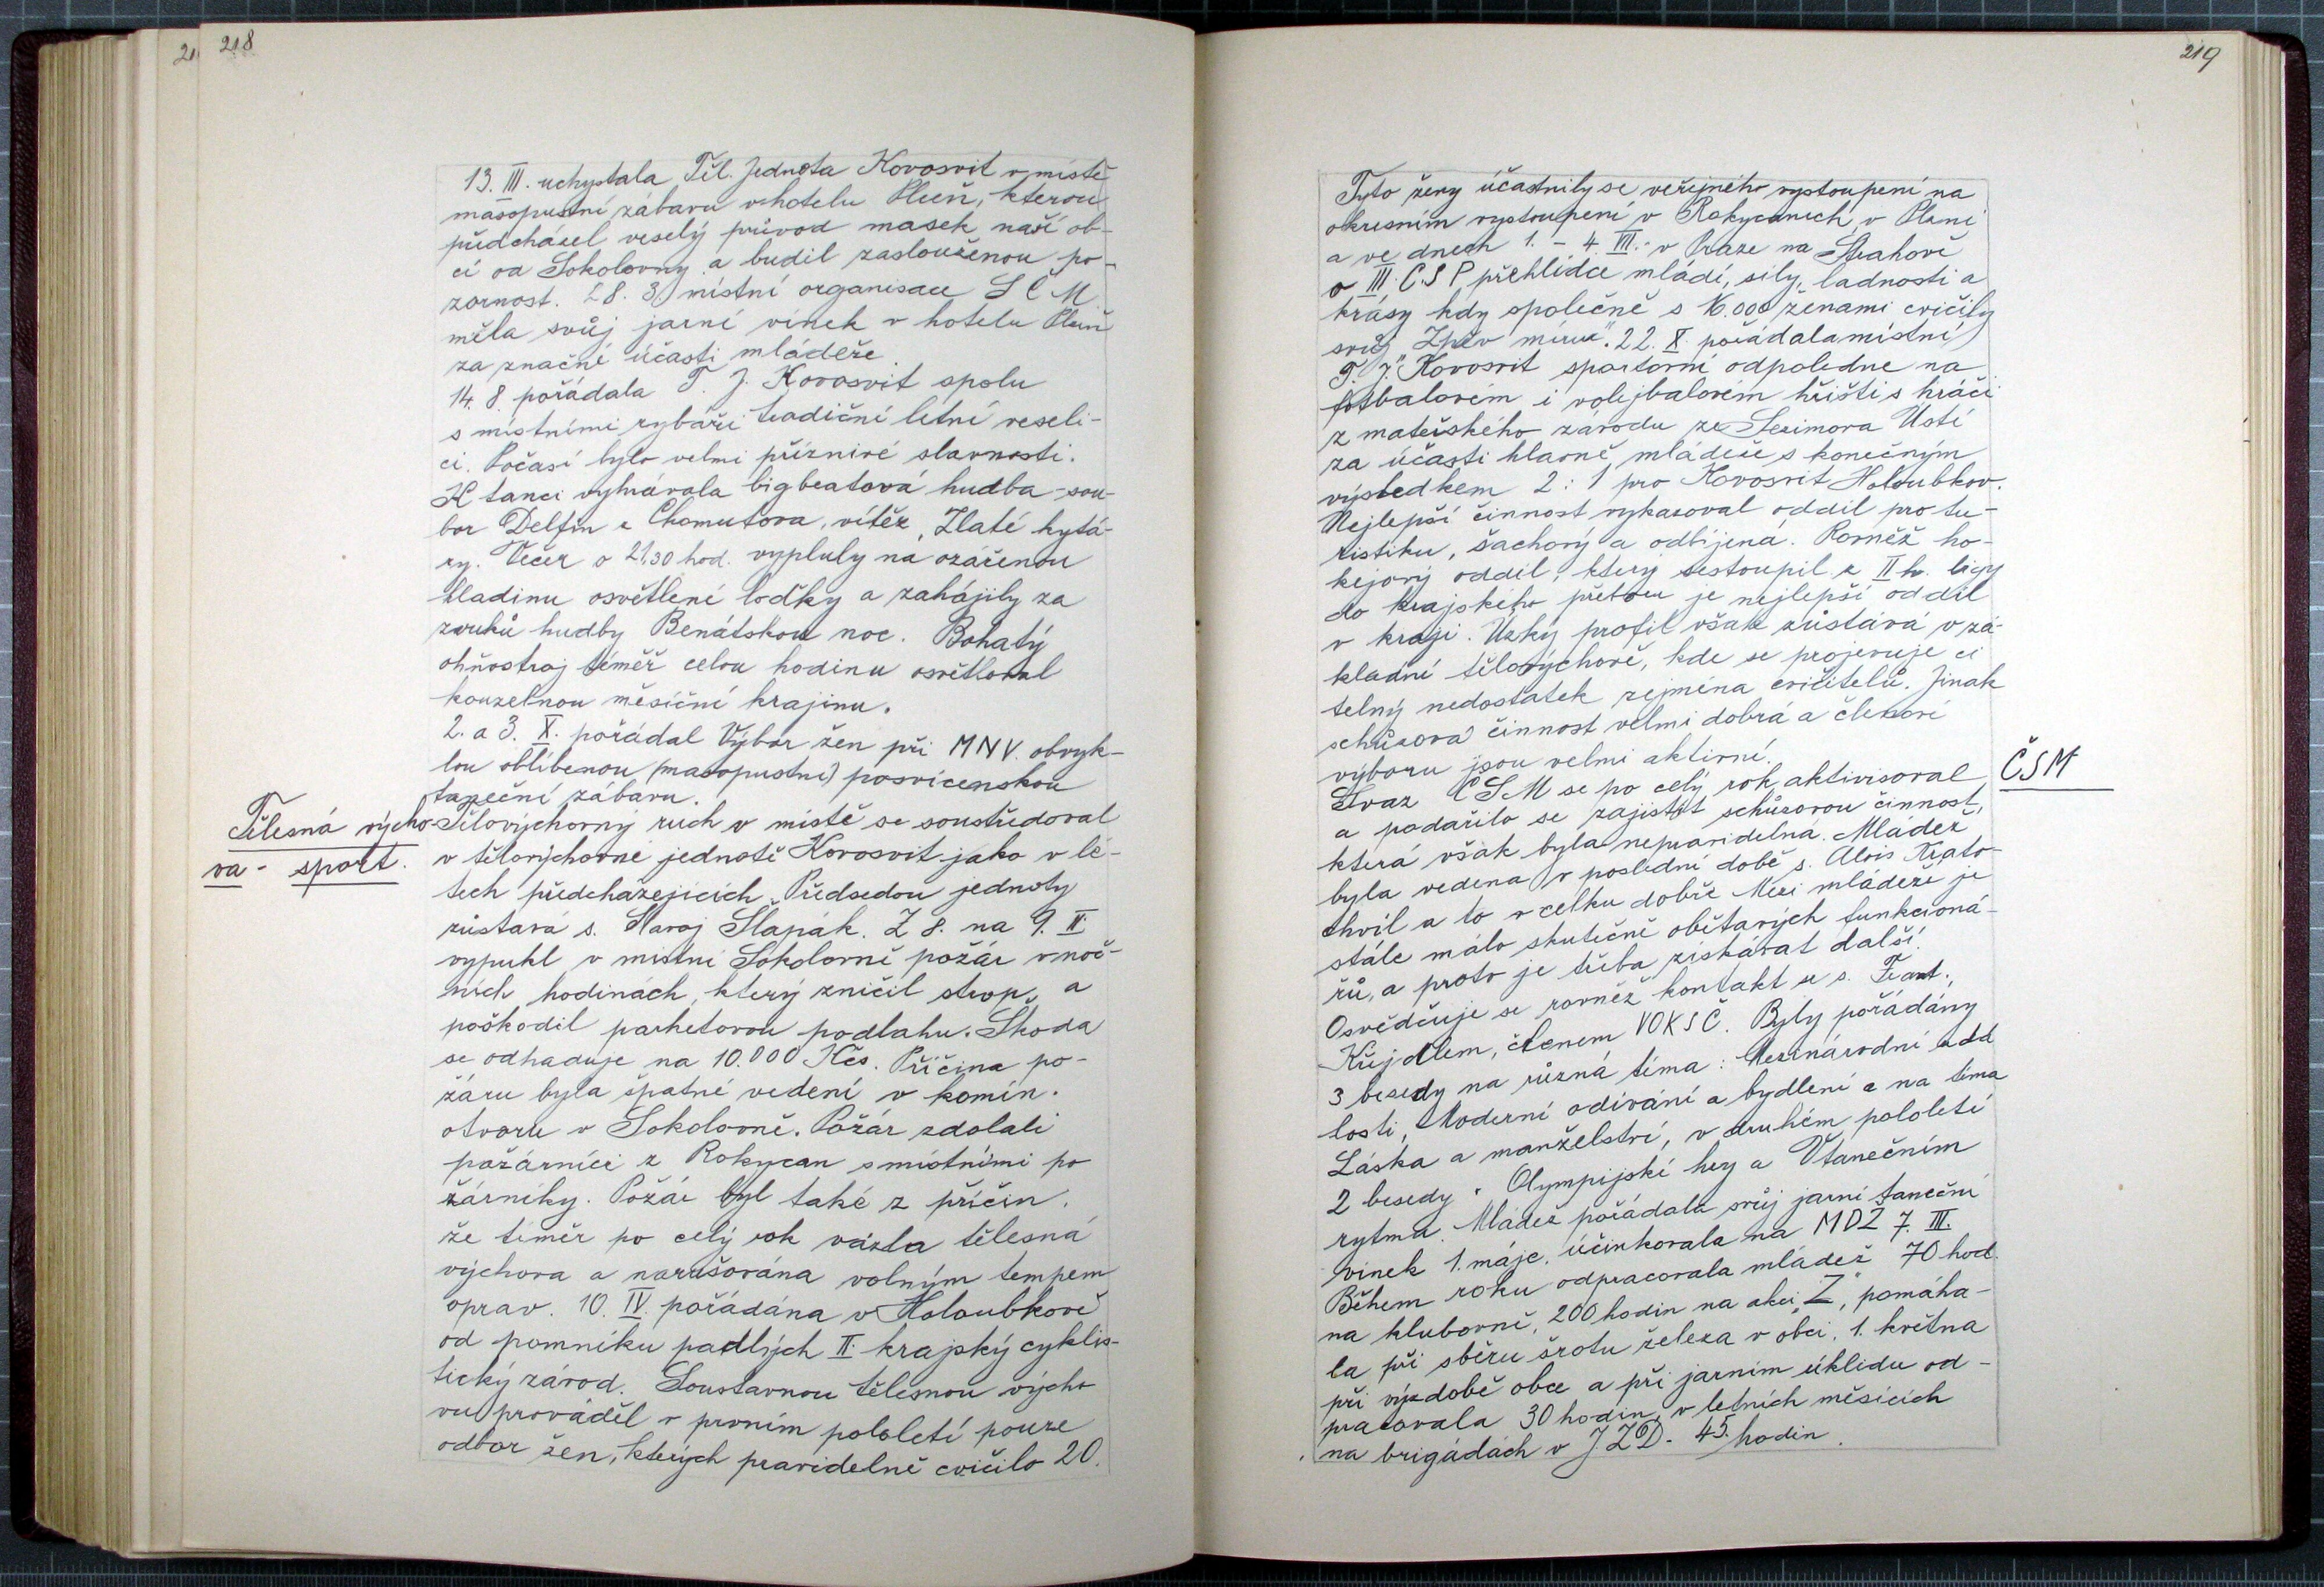 218
13. III. uchystala Těl. Jednota Kovosvit v místě
masopustní zábavu v hotelu Plzeň, kterou
předcházel veselý průvod masek naší ob-
cí od Sokolovny a budil zaslouženou po-
zornost. 28. 3. místní organisace S Č M
měla svůj jarní vínek v hotelu Plzeň
za značné účasti mládeže.
14. 8. pořádala T. J. Kovosvit spolu
s místními rybáři tradiční letní veseli-
ci. Počasí bylo velmi příznivé slavnosti.
K tanci vyhrávala bigbeatová hudba - sou-
bor Delfín z Chomutova, vítěz, Zlaté kytá-
ry. Večer o 21,30 hod. vypluly na ozářenou
hladinu osvětlené loďky a zahájily za
zvuků hudby Benátskou noc. Bohatý
ohňostroj téměř celou hodinu osvětloval
kouzelnou měsíční krajinu.
2. a 3. X. pořádal Výbor žen při MNV. obvyk-
lou oblíbenou (masopustní) posvícenskou
taneční zábavu.
Tělesná výcho-
va - sport.
Tělovýchovný ruch v místě se soustřeďoval
v tělovýchovné jednotě Kovosvit jako v lé-
tech předcházejících. Předsedou jednoty
zůstává s. Slavoj Šlapák. Z 8. na 9. II.
vypukl v místní Sokolovně požár v noč-
ních hodinách, který zničil strop a
poškodil parketovou podlahu. Škoda
se odhaduje na 10.000 Kčs. Příčina po-
žáru byla špatné vedení v komín.
otvoru v Sokolovně. Požár zdolali
požárníci z Rokycan s místními po
žárníky. Požár byl také z příčin,
že téměř po celý rok vázla tělesná
výchova a narušována volným tempem
oprav. 10. IV. pořádána v Holoubkově
od pomníku padlých II. krajský cyklis-
tický závod. Soustavnou tělesnou výcho
vu prováděl v prvním pololetí pouze
odbor žen, kterých pravidelně cvičilo 20.
219
Tyto ženy účastnily se veřejného vystoupení na
okresním vystoupení v Rokycanech, v Plzni
a ve dnech 1. - 4. VII. v Praze na Strahově
o III. C.S P. přehlídce mládí, síly, ladnosti a
krásy kdy společně s 16.000 ženami cvičily
svůj "Zpěv míru". 22. X. pořádala místní
T. J. Kovosvit sportovní odpoledne na
fotbalovém i volejbalovém hřišti s hráči
z mateřského závodu ze Sezimova Ústí
za účasti hlavně mládeže s konečným
výsledkem 2 : 1 pro Kovosvit Holoubkov.
Nejlepší činnost vykazoval oddíl pro tu-
ristiku, šachový a odbíjená. Rovněž ho-
kejový oddíl, který sestoupil z II h. ligy
do krajského přeboru je nejlepší oddíl
v kraji. Úzký profil však zůstává v zá-
kladní tělovýchově, kde se projevuje ci
telný nedostatek zejména cvičitelů. Jinak
schůzová činnost velmi dobrá a členové
výboru jsou velmi aktivní.
ČSM
Svaz ČSM se po celý rok aktivisoval
a podařilo se zajistit schůzovou činnost,
která však byla nepravidelná. Mládež
byla vedena v poslední době s. Alois Krato-
chvíl a to v celku dobře. Mezi mládeží je
stále málo skutečně obětavých funkcioná-
řů, a proto je třeba získávat další.
Osvědčuje se rovněž kontakt u s. Frant.
Křejdlem, členem VOKSČ. Byly pořádány
3 besedy na různá téma: Mezinárodní udá
losti, Moderní odívání a bydlení a na téma
Láska a manželství, v druhém pololetí
2 besedy: Olympijské hry a V tanečním
rytmu. Mládež pořádala svůj jarní taneční
vínek 1. máje, účinkovala na MDŽ 7. III.
Během roku odpracovala mládež 70 hod.
na klubovně, 200 hodin na akci "Z", pomáha-
la při sběru šrotu železa v obci, 1. května
při výzdobě obce a při jarním úklidu od-
pracovala 30 hodin, v letních měsících
na brigádách v J.Z.D. - 45. hodin.